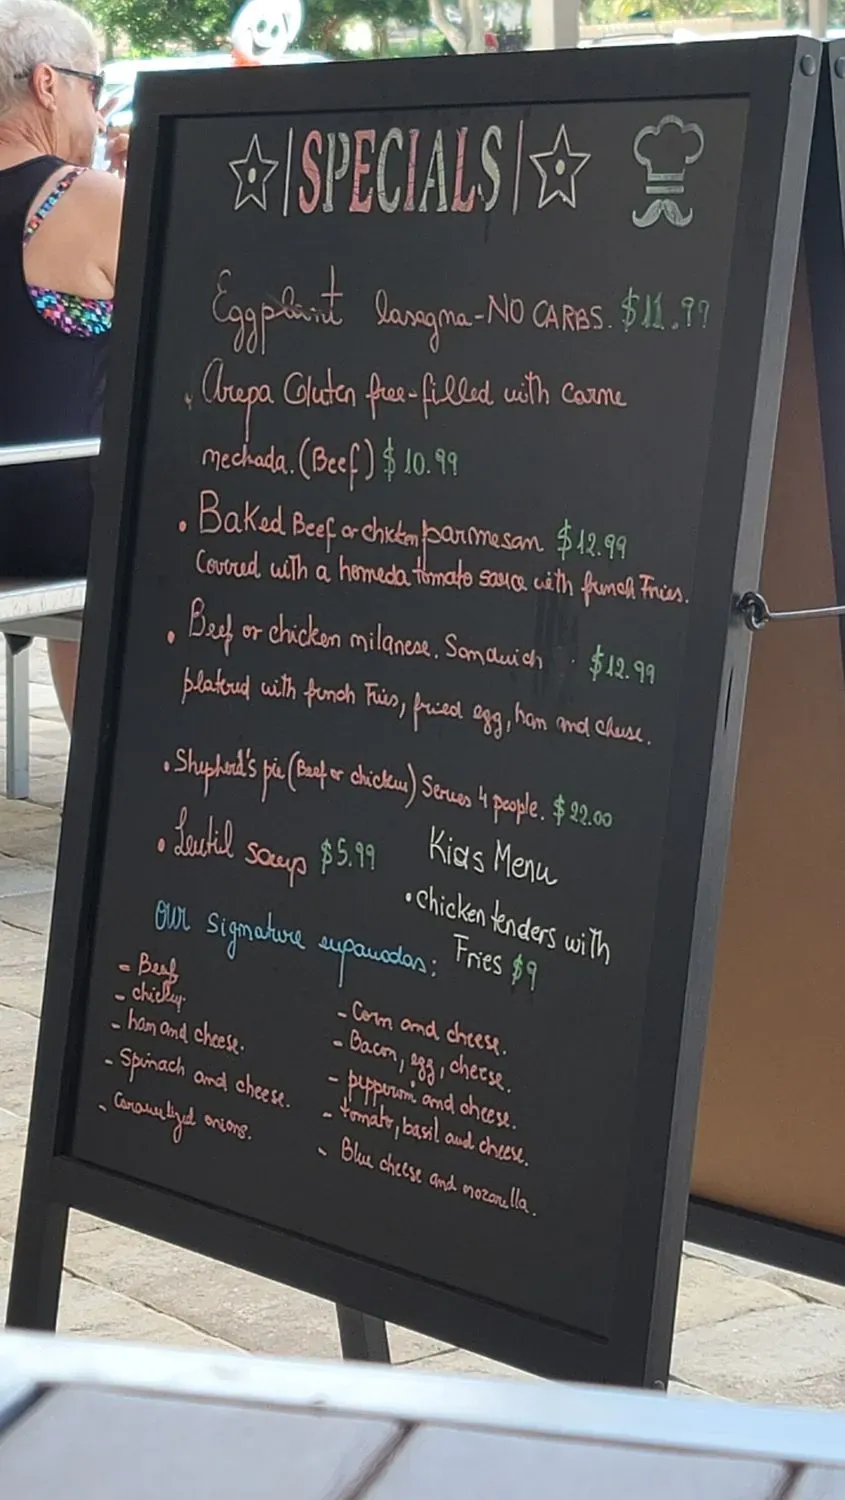 SPECIALS
Eggplant lasagna-NO CARBS. $11.99
Arepa Gluten free-filled with carne
mechada. (Beef) $10.99
• Baked Beef or chicken parmesan $12.99
Covered with a homeda tomato sauce with french Fries.
• Beef or chicken milanese. Sandwich $12.99
platered with french Fries, fried egg, ham and cheese.
• Shepherd's pie (Beef or chicken) Serves 4 people. $22.00
• Lentil soup $5.99
Kids Menu
• chicken tenders with
Fries $9
our signature empanadas:
- Beef
- chicken.
- ham and cheese.
- Spinach and cheese.
- Caramelized onions.
- Corn and cheese.
- Bacon, egg, cheese.
- pepperoni and cheese.
- tomato, basil and cheese.
- Blue cheese and mozarella.